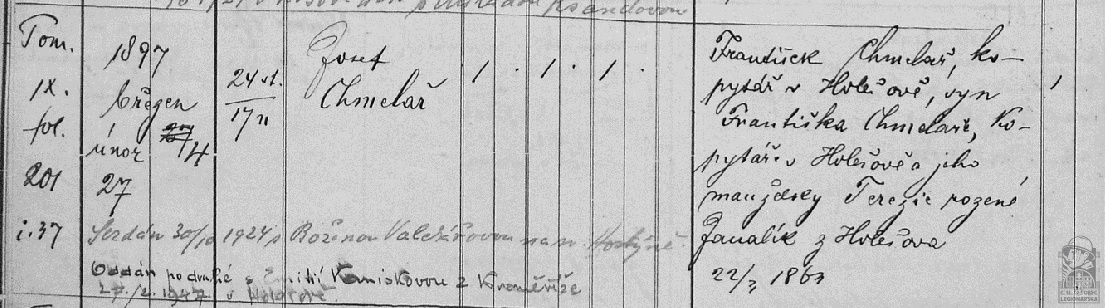 Tom.
IX.
fol.
201
i:37
1897
březen
únor 4
27
24 st.
17 n
Josef
Chmelař
1 . 1 . 1 .
František Chmelař, ko-
pytář v Holešově, syn
Františka Chmelaře, ko-
pytáře v Holešově a jeho
manželky Terezie rozené
z Holešova
22/3 1863
1
Serdán 30/10 1924 s Boženou na
Oddán po druhé s Emilií Kaniskovou z Kroměříže
27/2. 1947 v